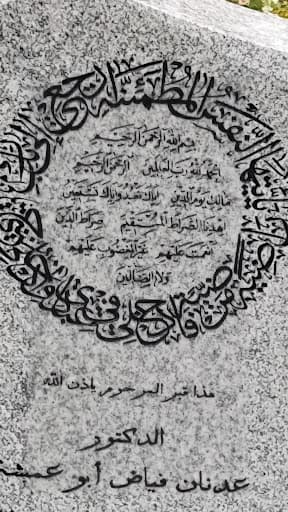 يا أيتها النفس المطمئنة ارجعي إلى ربك راضية مرضية فادخلي في عبادي وادخلي جنتي
بسم الله الرحمن الرحيم
الحمد لله رب العالمين الرحمن الرحيم
مالك يوم الدين إياك نعبد وإياك نستعين
اهدنا الصراط المستقيم صراط الذين
أنعمت عليهم غير المغضوب عليهم
ولا الضالين
هذا قبر المرحوم بإذن الله
الدكتور
عدنان فياض أبو عمشة